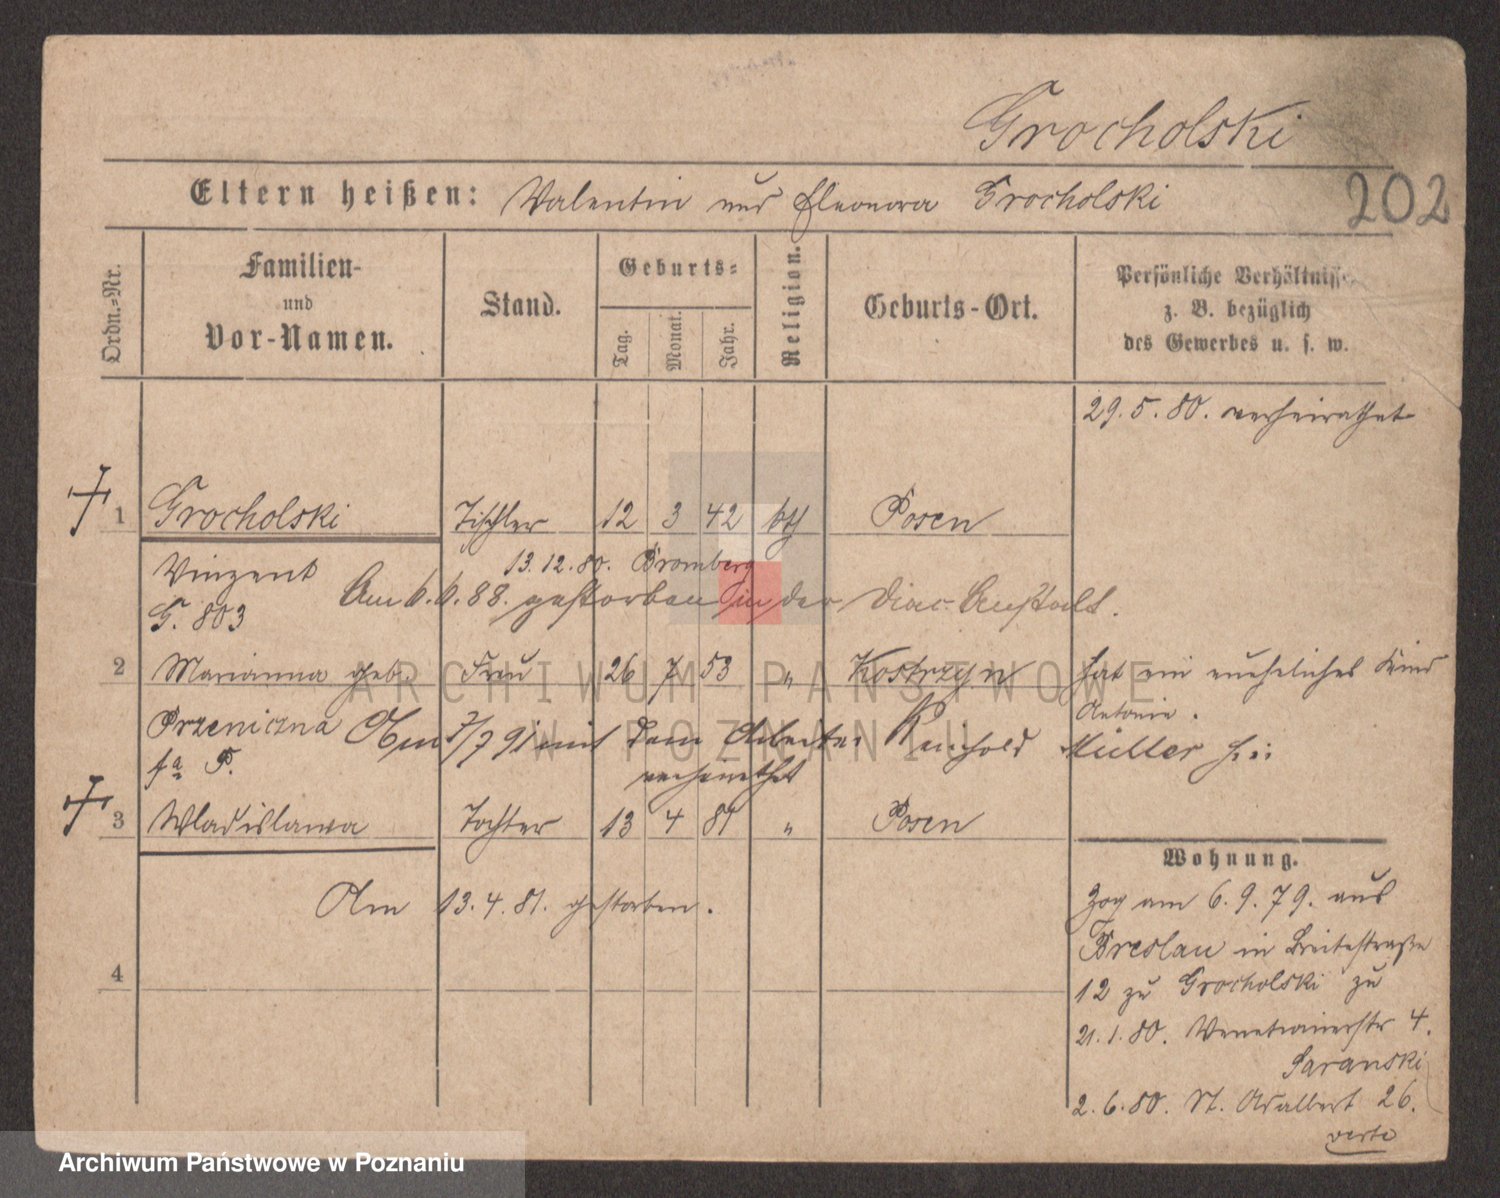 Grocholski
Eltern heißen: Valentin und Eleonora Grocholski
202
Ordn.=Nr.
Familien-
und
Vor-Namen.
Stand.
Geburts=
Tag.
Monat.
Jahr.
Religion.
Geburts-Ort.
Persönliche Verhältnisse
z. B. bezüglich
des Gewerbes u. s. w.
29. 5. 80. verheirathet
1 Grocholski Tischler 12 3 42 kth Posen
13. 12. 80. Bromberg
Vinzent
Am 6. 6. 88. gestorben in der Diac. Anstalt.
G. 803
2 Marianna geb. Frau 26 7 53 " Kostrzyn hat ein uneheliches Kind
Antonie.
Przeniczna Am 7/7 91 mit dem Arbeiter Reinhold Müller
verheirathet
3 Wladislawa Tochter 13 4 81 " Posen
Am 13. 4. 81. gestorben.
4
Wohnung.
Zog am 6. 9. 79. aus
Breslau in Breitestraße
12 zu Grocholski zu
21. 1. 80. Venetianerstr 4.
2. 6. 80. St. Adalbert 26.
verte
ARCHIWUM PAŃSTWOWE
W POZNANIU
Archiwum Państwowe w Poznaniu